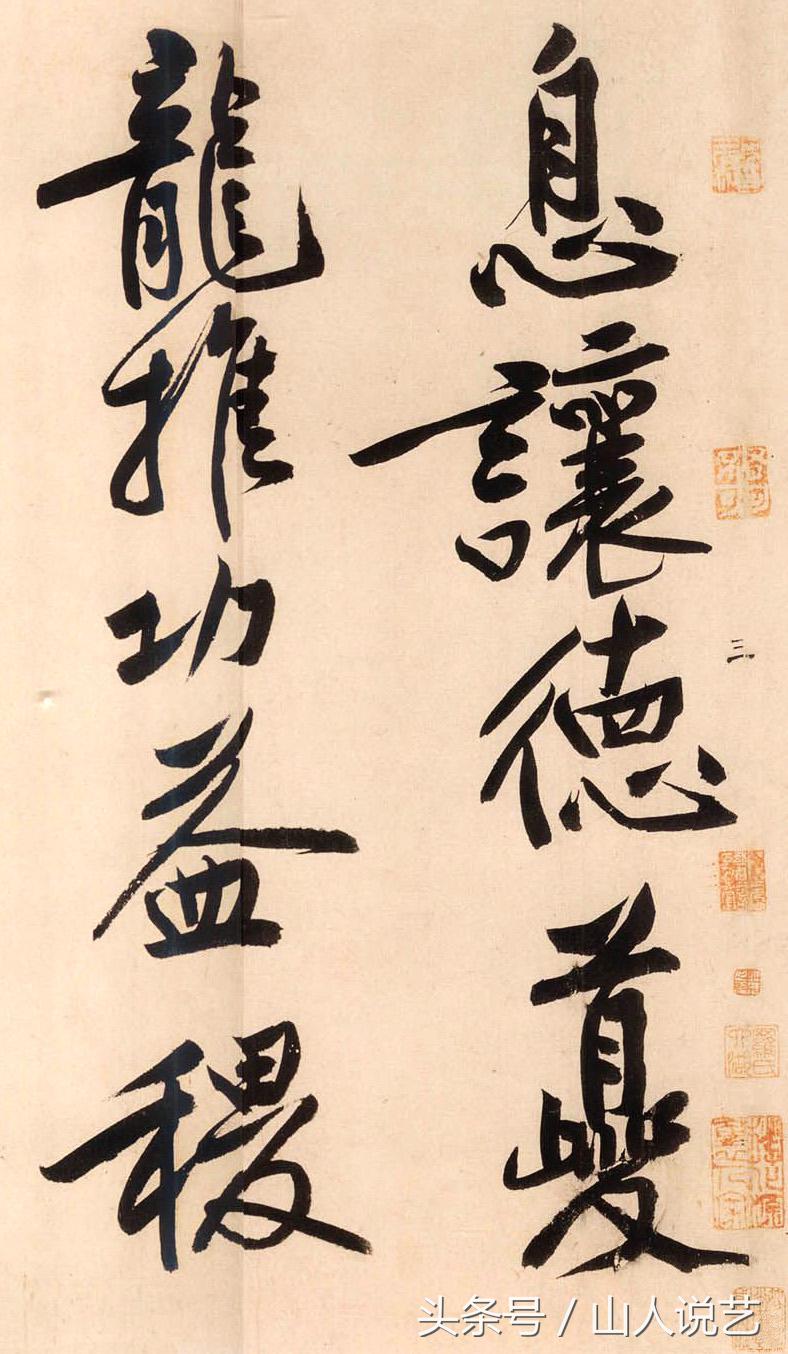 息讓德夔
龍推功益稷
三
头条号 / 山人说艺